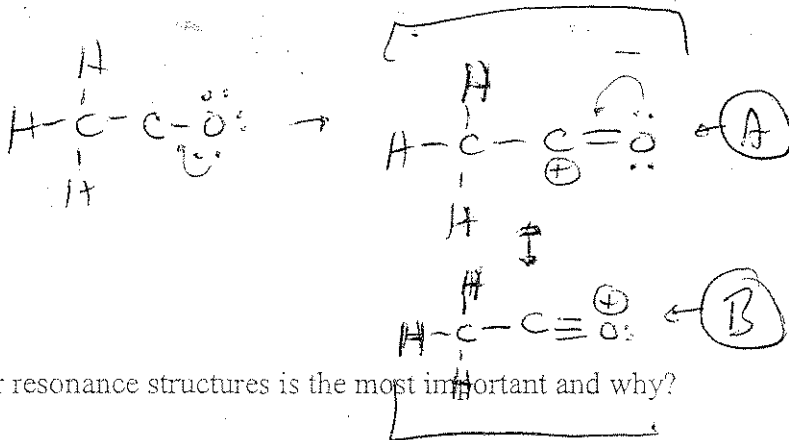 H H
H-C-C-O: → H-C-C=O: ← A
H ⊕
H
↕
H ⊕
H-C-C≡O: ← B
H
r resonance structures is the most important and why?